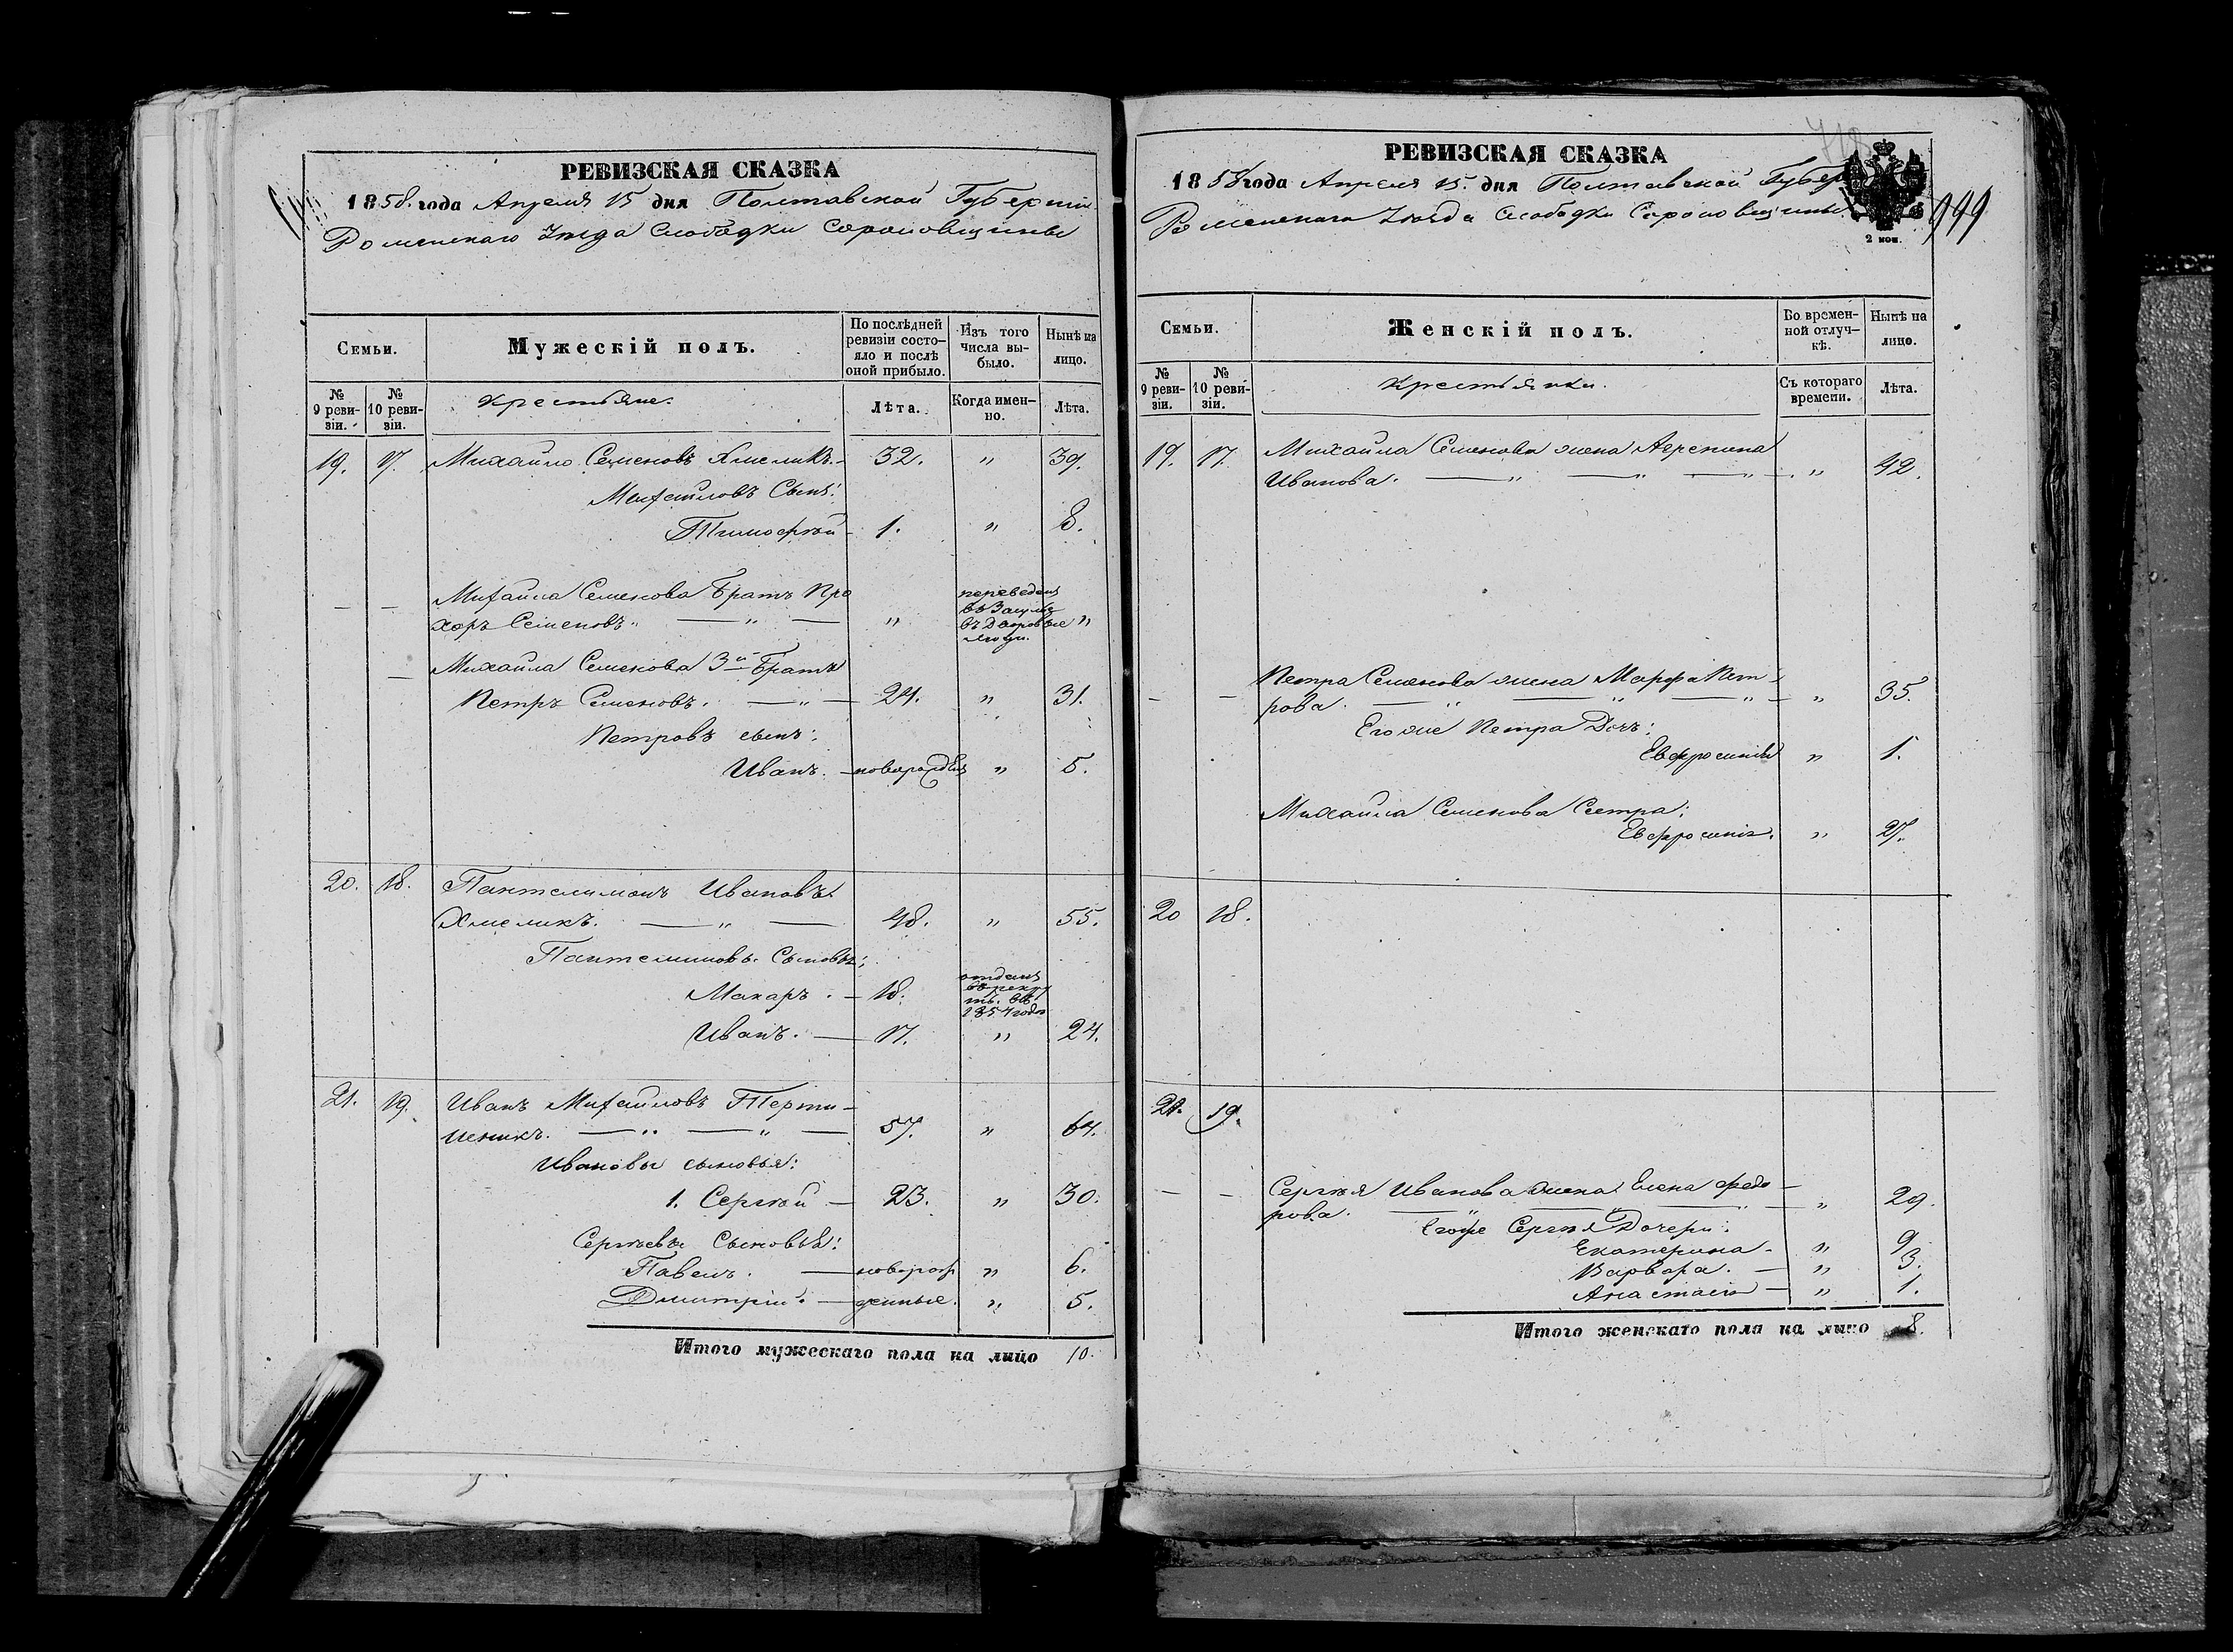 РЕВИЗСКАЯ СКАЗКА
1858. года Апреля 15 дня Полтавской Губернии
Роменскаго Уѣзда Слободки Сороковщины
Семьи.
Мужескій полъ.
По послѣдней ревизіи состо-
яло и послѣ оной прибыло.
Изъ того числа вы-
было.
Нынѣ на лицо.
№ 9 реви-
зіи.
№ 10 реви-
зіи.
Крестьяне.
Лѣта.
Когда имен-
но.
Лѣта.
19. 17. Михайло Семеновъ Хмеликъ. 32. " 39.
Михайловъ Сынъ:
Тимофѣй 1. " 8.
Михайла Семенова Братъ Про
хоръ Семеновъ. " " "
переведенъ
въ
въ Дворовые
люди.
Михайла Семенова 3й Братъ
Петръ Семеновъ. " 24. " 31.
Петровъ сынъ:
Иванъ. новорожденъ " 5.
20. 18. Пантелимонъ Ивановъ
Хмеликъ. " 48. " 55.
Пантелимовы Сыновья:
Макаръ. 18.
отданъ
въ рекру
ты въ
1854 годѣ
Иванъ. 17. " 24.
21. 19. Иванъ Михайловъ Терти-
шникъ. " " 57. " 64.
Ивановы сыновья:
1. Сергѣй 23. " 30.
Сергѣевы Сыновья:
Павелъ. новорож " 6.
Дмитрій. денные. " 5.
Итого мужескаго пола на лицо 10.
РЕВИЗСКАЯ СКАЗКА
1858 года Апреля 15. дня Полтавской Губер
Роменскаго Уѣзда Слободки Сороковщины.
2 коп.
999
Семьи.
Женскій полъ.
Во времен-
ной отлуч-
кѣ.
Нынѣ на лицо.
№ 9 реви-
зіи.
№ 10 реви-
зіи.
Крестьянки.
Съ котораго времени.
Лѣта.
19. 17. Михайла Семенова жена Агрепина
Иванова. " " " " 42.
Петра Семенова жена Марфа Пет-
рова. " " " " 35.
Его же Петра Дочь:
Евфросинья " 1.
Михайла Семенова Сестра:
Евфросинія. " 27.
20 18.
21. 19.
Сергѣя Иванова жена Елена Федо-
рова. " " " " 29.
Егоже Сергѣя Дочери:
Екатерина. " 9
Варвара. " 3.
Анастасія " 1.
Итого женскаго пола на лицо 8.